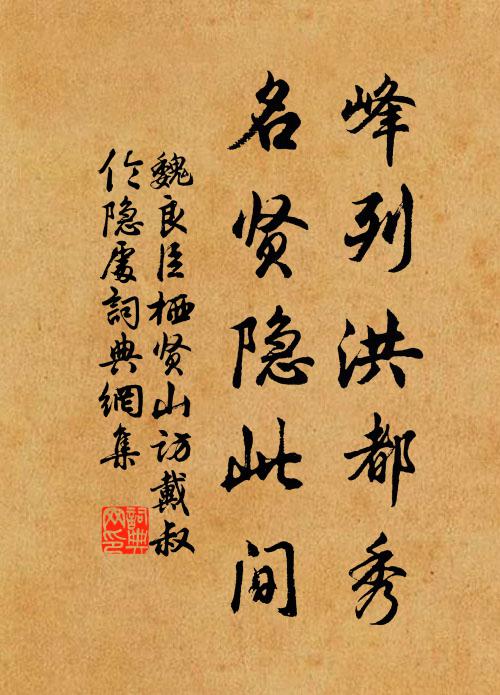 峰列洪都秀
名贤隐此间
魏良臣栖贤山访戴叔
伦隐處詞典網集
詞典
网印